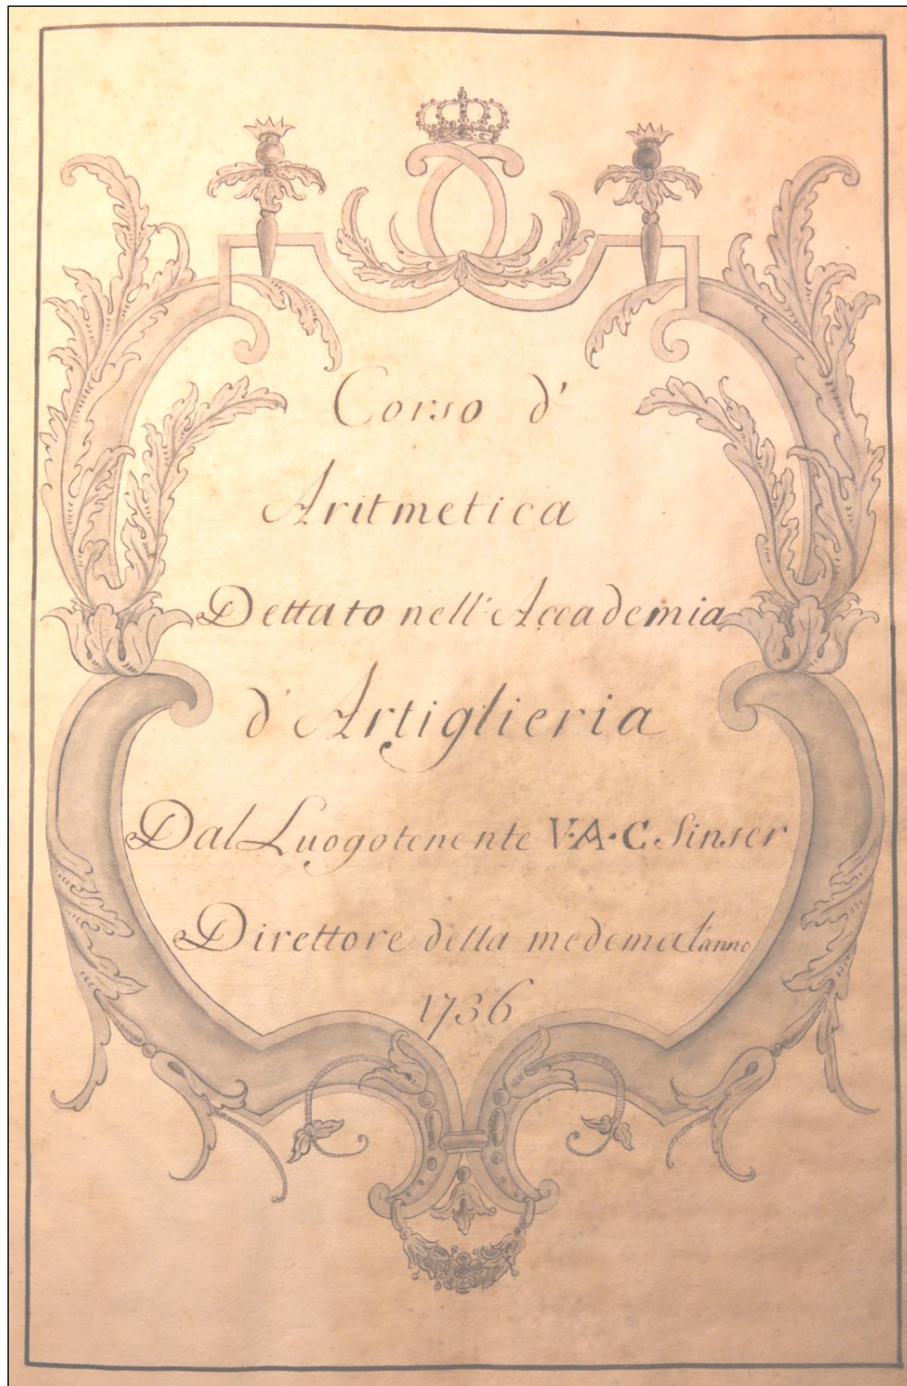 Corso d'
Aritmetica
Dettato nell'Accademia
d'Artiglieria
Dal Luogotenente V·A·C· Sinser
Direttore della medema l'anno
1736